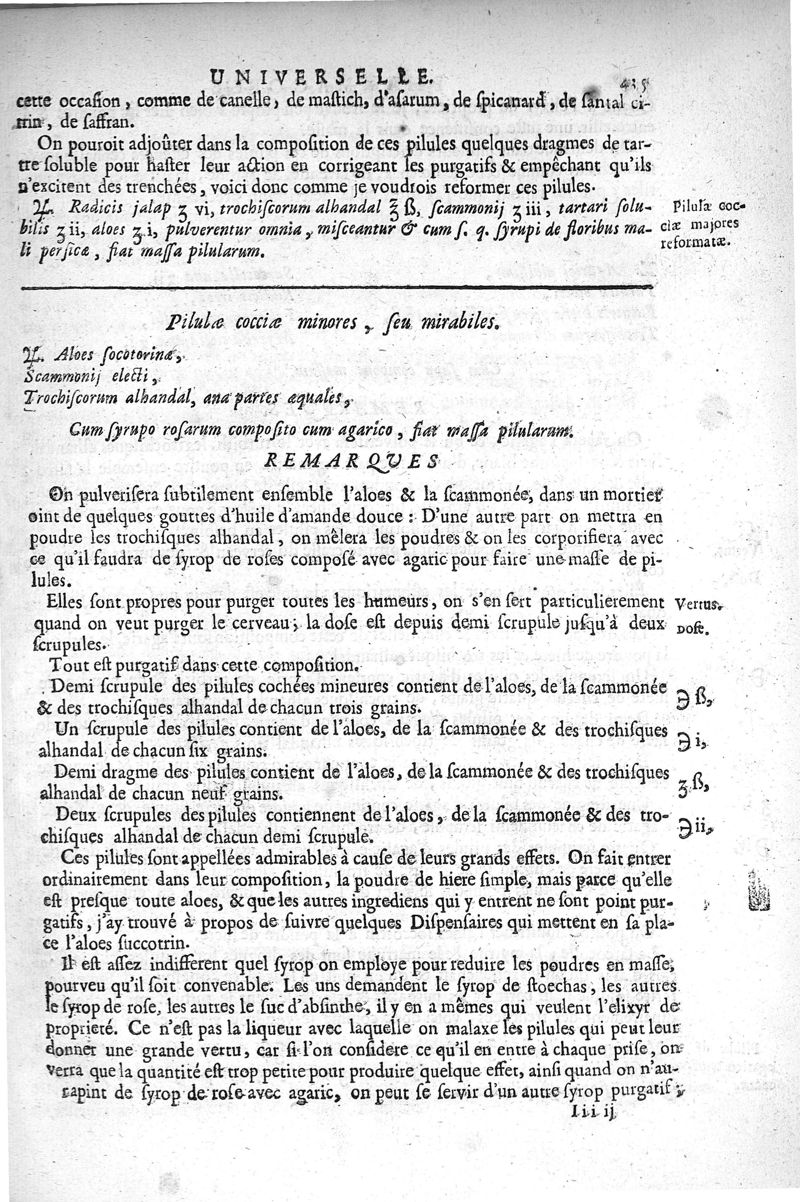 UNIVERSELLE. 435
cette occasion, comme de canelle, de mastich, d'asarum, de spicanard, de santal ci-
trin, de saffran.
On pouroit adjoûter dans la composition de ces pilules quelques dragmes de tar-
tre soluble pour haster leur action en corrigeant les purgatifs & empêchant qu'ils
n'excitent des trenchées, voici donc comme je voudrois reformer ces pilules.
♃. Radicis jalap ʒ vi, trochiſcorum alhandal ℥ ß, ſcammonij ʒ iii, tartari ſolu-
bilis ʒ ii, aloes ʒ i, pulverentur omnia, miſceantur & cum ſ. q. ſyrupi de floribus ma-
li perſicæ, fiat maſſa pilularum.
Pilulæ coc-
ciæ majores
reformatæ.
Pilulæ cocciæ minores, ſeu mirabiles.
♃. Aloes ſocotorinæ,
Scammonij electi,
Trochiſcorum alhandal, ana partes æquales,
Cum ſyrupo roſarum compoſito cum agarico, fiat maſſa pilularum.
REMARQUES
On pulveriſera ſubtilement enſemble l'aloes & la ſcammonée, dans un mortier
oint de quelques gouttes d'huile d'amande douce : D'une autre part on mettra en
poudre les trochiſques alhandal, on mêlera les poudres & on les corporifiera avec
ce qu'il faudra de ſyrop de roſes compoſé avec agaric pour faire une maſſe de pi-
lules.
Elles ſont propres pour purger toutes les humeurs, on s'en ſert particulierement
quand on veut purger le cerveau; la doſe eſt depuis demi ſcrupule juſqu'à deux
ſcrupules.
Vertus.
Doſe.
Tout eſt purgatif dans cette compoſition.
Demi ſcrupule des pilules cochées mineures contient de l'aloes, de la ſcammonée
& des trochiſques alhandal de chacun trois grains.
℈ ß,
Un ſcrupule des pilules contient de l'aloes, de la ſcammonée & des trochiſques
alhandal de chacun ſix grains.
℈ i,
Demi dragme des pilules contient de l'aloes, de la ſcammonée & des trochiſques
alhandal de chacun neuf grains.
ʒ ß,
Deux ſcrupules des pilules contiennent de l'aloes, de la ſcammonée & des tro-
chiſques alhandal de chacun demi ſcrupule.
℈ ii,
Ces pilules ſont appellées admirables à cauſe de leurs grands effets. On fait entrer
ordinairement dans leur compoſition, la poudre de hiere ſimple, mais parce qu'elle
eſt preſque toute aloes, & que les autres ingrediens qui y entrent ne ſont point pur-
gatifs, j'ay trouvé à propos de ſuivre quelques Diſpenſaires qui mettent en ſa pla-
ce l'aloes ſuccotrin.
Il eſt aſſez indifferent quel ſyrop on employe pour reduire les poudres en maſſe,
pourveu qu'il ſoit convenable. Les uns demandent le ſyrop de ſtoechas, les autres
le ſyrop de roſe, les autres le ſuc d'abſinthe, il y en a mêmes qui veulent l'elixyr de
proprieté. Ce n'eſt pas la liqueur avec laquelle on malaxe les pilules qui peut leur
donner une grande vertu, car ſi l'on conſidere ce qu'il en entre à chaque priſe, on
verra que la quantité eſt trop petite pour produire quelque effet, ainſi quand on n'au-
rapint de ſyrop de roſe avec agaric, on peut ſe ſervir d'un autre ſyrop purgatif;
Iii ij